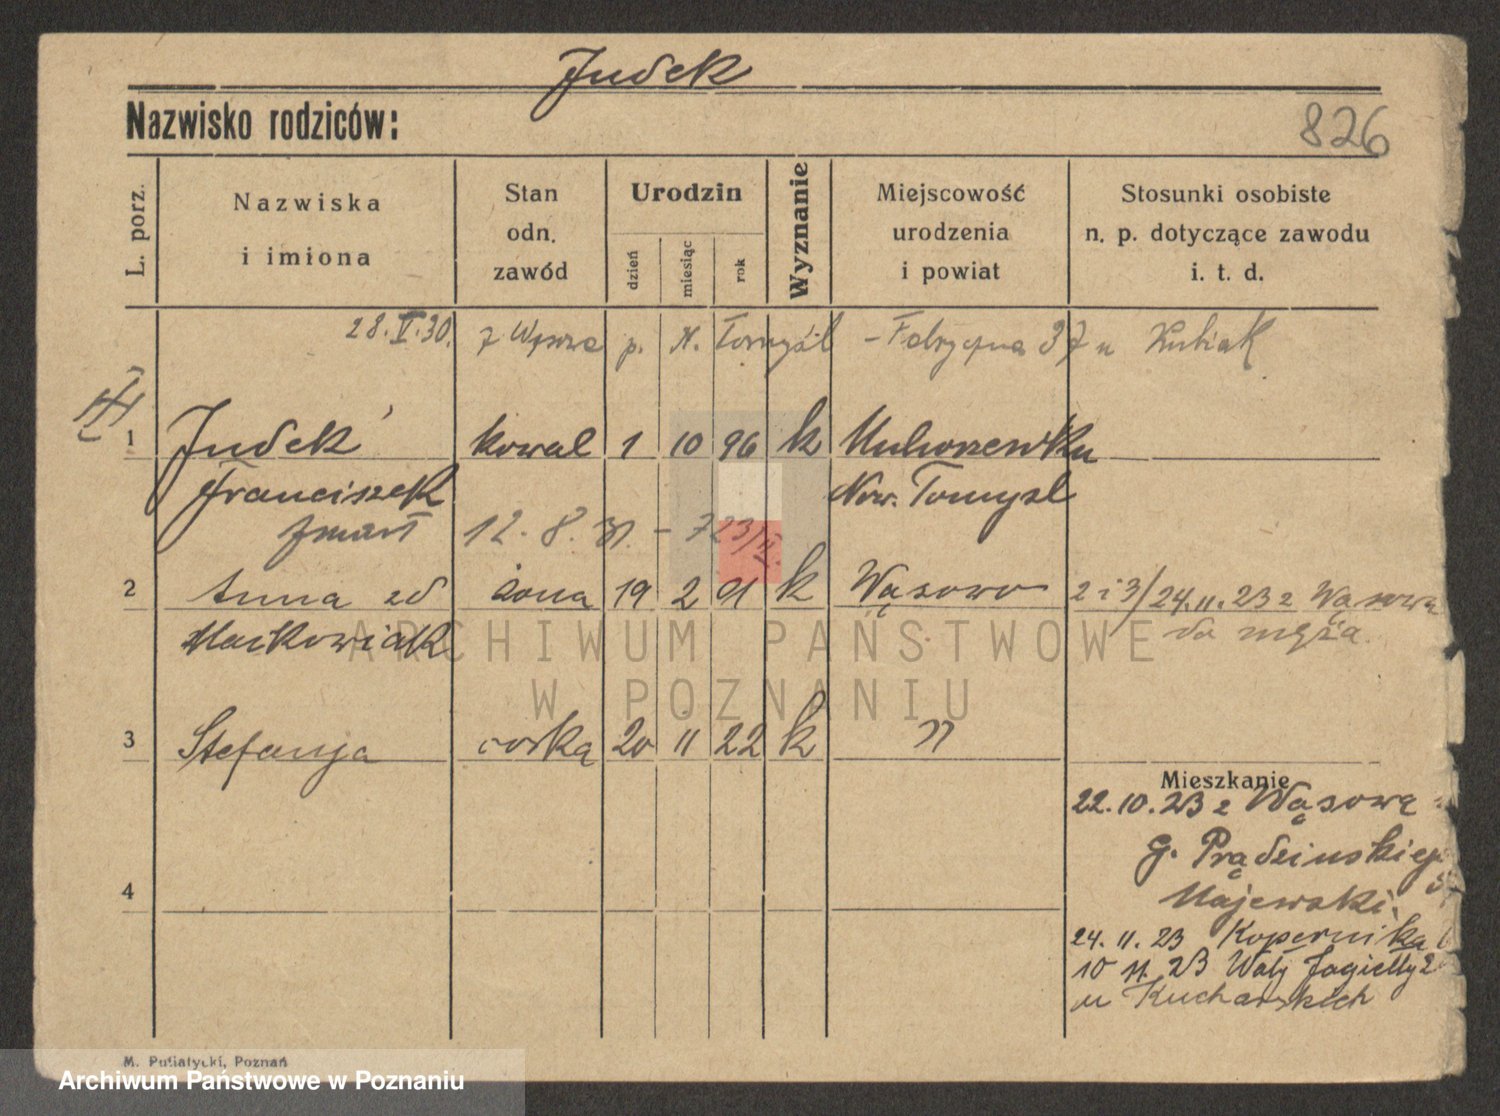 Judek
Nazwisko rodziców:
826
L. porz.
Nazwiska
i imiona
Stan
odn.
zawód
Urodzin
dzień
miesiąc
rok
Wyznanie
Miejscowość
urodzenia
i powiat
Stosunki osobiste
n. p. dotyczące zawodu
i. t. d.
28.V.30. z p. N. Tomyśl - Fabryczna 37 u Kubiak
1 Judek kowal 1 10 96 k
Franciszek Now. Tomysl
zmarł 12. 8. 31. - 723/II.
2 Anna zd żona 19 2 91 k Wąsowo 2 i 3/24.11.23 z Wąsowa
Maćkowiak do męża.
3 Stefanja córka 20 11 22 k "
Mieszkanie
22.10.23 z Wąsowa
G. Prądzińskiego
Majewski.
4
24. 11. 23 Kopernika
10 11. 23 Wały Jagiełły 2
u Kucharskich
M. Putiatycki, Poznań
ARCHIWUM PAŃSTWOWE
W POZNANIU
Archiwum Państwowe w Poznaniu